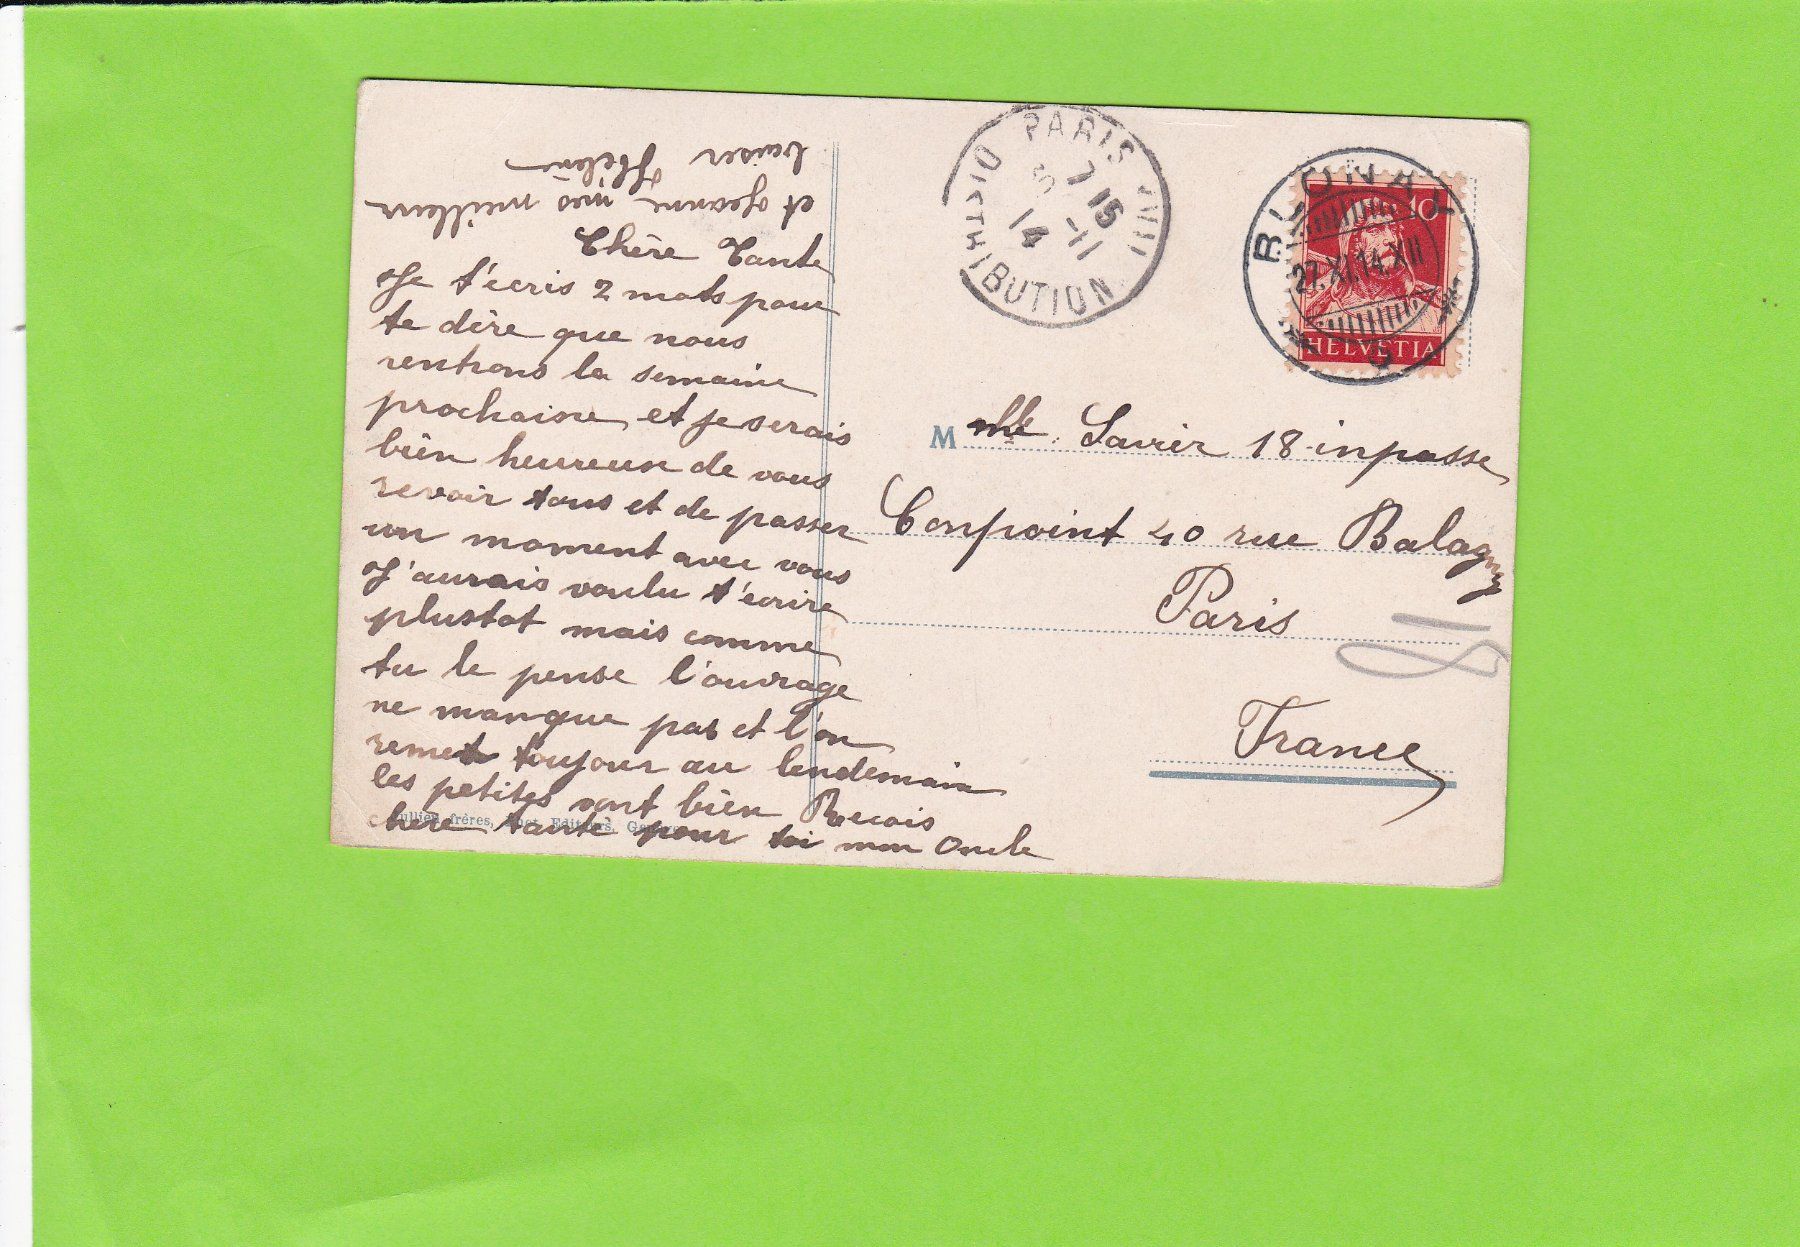 Chère Tante
Je t'écris 2 mots pour
te dire que nous
rentrons la semaine
prochaine et je serais
bien heureuse de vous
revoir tous et de passer
un moment avec vous
J'aurais voulu t'écrire
plustot mais comme
tu le pense l'ouvrage
ne manque pas et l'on
remet toujour au lendemain
les petites vont bien Recois
chere tante pour toi mon Oncle
et Jeanne mes meilleur
baiser Hélène
Jullien frères, Editeurs,
PARIS XVII
7 15
5 -11
14
DISTRIBUTION
BLONAY
27.XI.14.XII
10
HELVETIA
M Savier 18 inpasse
Conpoint 40 rue Balagny
Paris
18
France